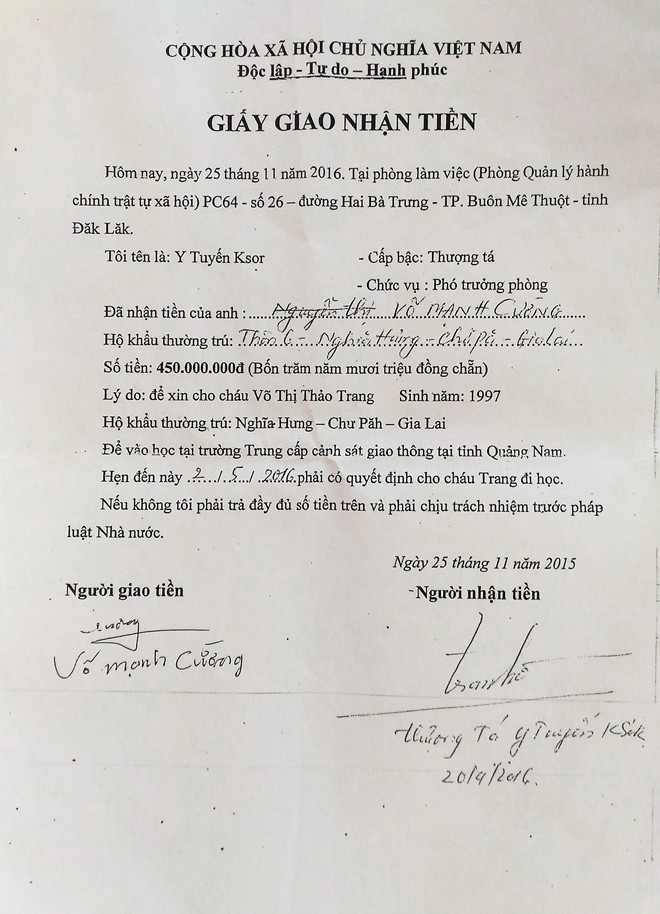 CỘNG HÒA XÃ HỘI CHỦ NGHĨA VIỆT NAM
Độc lập - Tự do – Hạnh phúc
GIẤY GIAO NHẬN TIỀN
Hôm nay, ngày 25 tháng 11 năm 2016. Tại phòng làm việc (Phòng Quản lý hành
chính trật tự xã hội) PC64 - số 26 – đường Hai Bà Trưng - TP. Buôn Mê Thuột - tỉnh
Đăk Lăk.
Tôi tên là: Y Tuyến Ksor - Cấp bậc: Thượng tá
- Chức vụ : Phó trưởng phòng
Đã nhận tiền của anh : Nguyễn thị VÕ MẠNH CƯỜNG
Hộ khẩu thường trú: Thôn 6 - Nghĩa Hưng - Chư Pả - Gia Lai
Số tiền: 450.000.000đ (Bốn trăm năm mươi triệu đồng chẵn)
Lý do: để xin cho cháu Võ Thị Thảo Trang Sinh năm: 1997
Hộ khẩu thường trú: Nghĩa Hưng – Chư Păh – Gia Lai
Để vào học tại trường Trung cấp cảnh sát giao thông tại tỉnh Quảng Nam.
Hẹn đến này 2/5/2016 phải có quyết định cho cháu Trang đi học.
Nếu không tôi phải trả đầy đủ số tiền trên và phải chịu trách nhiệm trước pháp
luật Nhà nước.
Ngày 25 tháng 11 năm 2015
Người giao tiền - Người nhận tiền
Võ mạnh Cường
thượng Tá Y Tuyến KSor
20/4/2016.